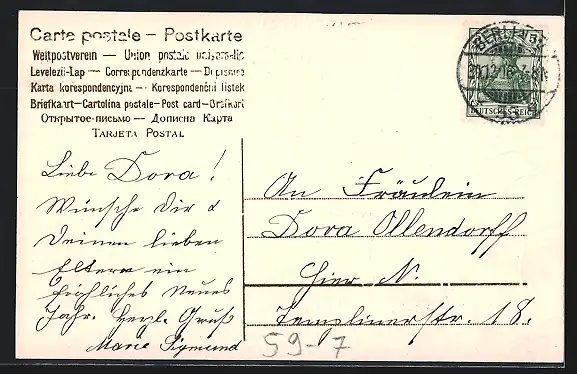 Carte postale – Postkarte
Weltpostverein — Union postale universelle
Levelezö-Lap — Correspondenzkarte —
Karta korespondencyjna — Korespondenční lístek
Briefkaart–Cartolina postale–Post card–Brefkort
Открытое-письмо – Дописна Карта
TARJETA POSTAL
BERLIN
DEUTSCHES REICH
Liebe Dora!
Wünsche Dir &
Deinen lieben
Eltern ein
fröhliches Neues
Jahr. Herzl. Gruß
Marie Sigmund
An Fräulein
Dora Ollendorff
Hier N.
Templinerstr. 18.
59-7